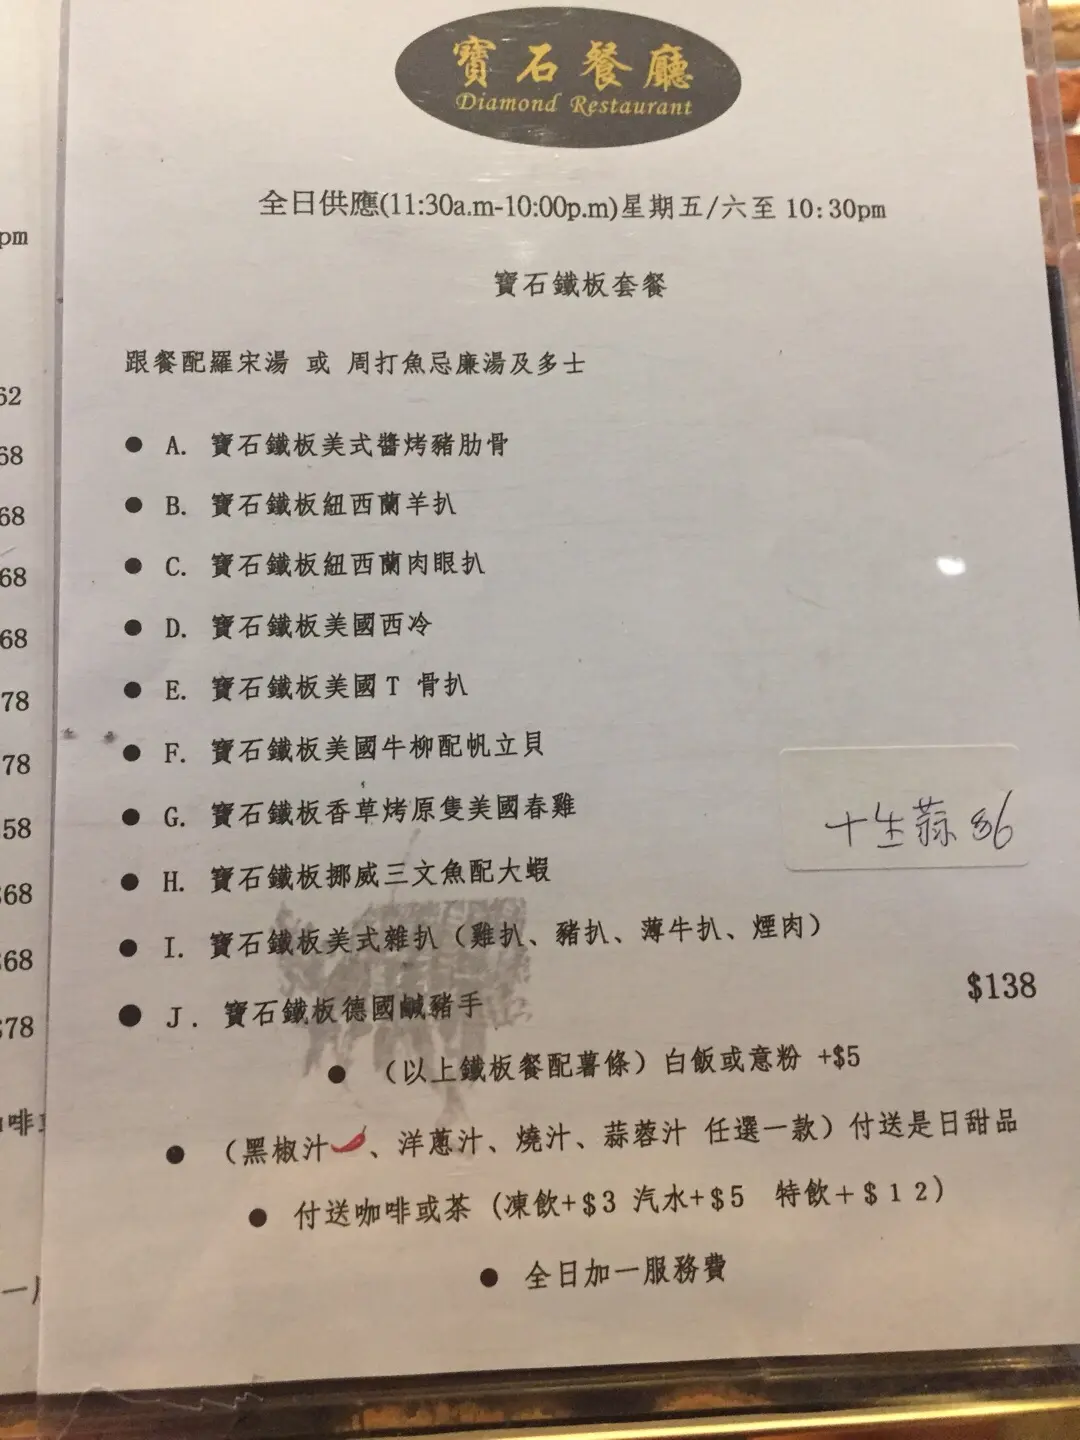 寶石餐廳
Diamond Restaurant
全日供應(11:30a.m-10:00p.m)星期五/六至 10:30pm
寶石鐵板套餐
跟餐配羅宋湯 或 周打魚忌廉湯及多士
● A. 寶石鐵板美式醬烤豬肋骨
● B. 寶石鐵板紐西蘭羊扒
● C. 寶石鐵板紐西蘭肉眼扒
● D. 寶石鐵板美國西冷
● E. 寶石鐵板美國T 骨扒
● F. 寶石鐵板美國牛柳配帆立貝
● G. 寶石鐵板香草烤原隻美國春雞
十生蒜 $6
● H. 寶石鐵板挪威三文魚配大蝦
● I. 寶石鐵板美式雜扒（雞扒、豬扒、薄牛扒、煙肉）
$138
● J. 寶石鐵板德國鹹豬手
● （以上鐵板餐配薯條）白飯或意粉 +$5
● （黑椒汁、洋蔥汁、燒汁、蒜蓉汁 任選一款）付送是日甜品
● 付送咖啡或茶（凍飲+$3 汽水+$5 特飲+$12）
● 全日加一服務費
pm
62
68
68
68
68
78
78
58
68
68
$78
啡